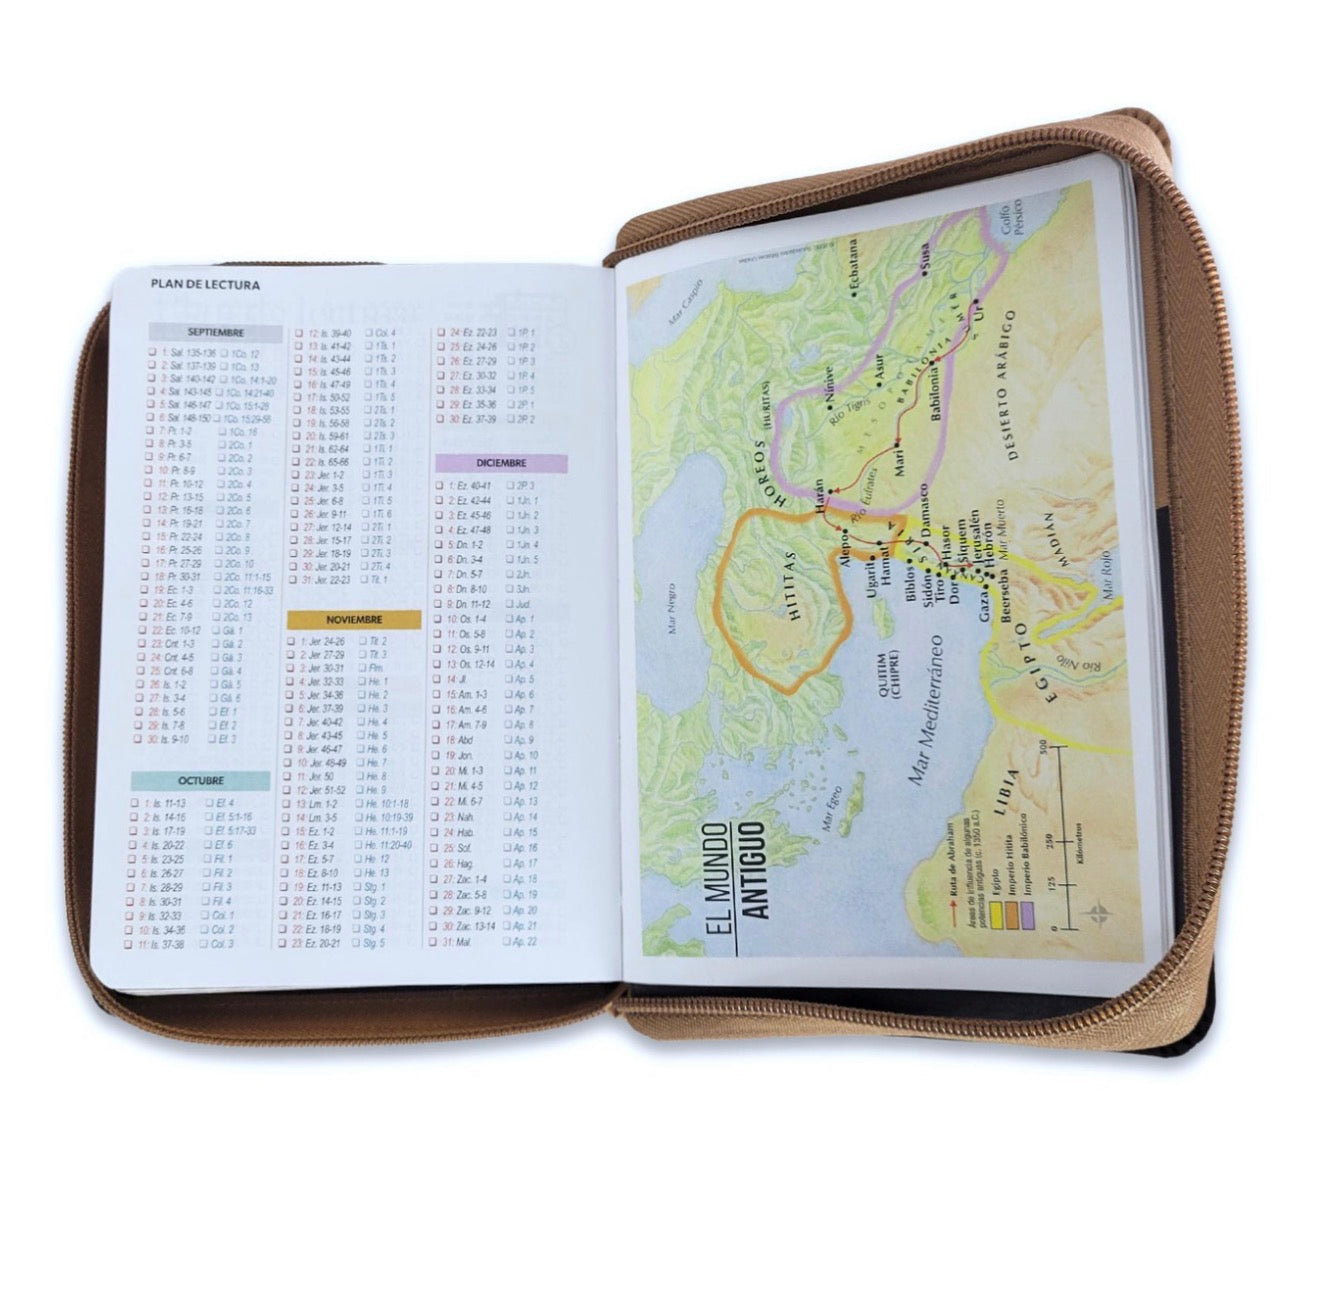 PLAN DE LECTURA
SEPTIEMBRE
1: Sal. 135-136 1Co. 12
2: Sal. 137-139 1Co. 13
3: Sal. 140-142 1Co. 14:1-20
4: Sal. 143-145 1Co. 14:21-40
5: Sal. 146-147 1Co. 15:1-28
6: Sal. 148-150 1Co. 15:29-58
7: Pr. 1-2 1Co. 16
8: Pr. 3-5 2Co. 1
9: Pr. 6-7 2Co. 2
10: Pr. 8-9 2Co. 3
11: Pr. 10-12 2Co. 4
12: Pr. 13-15 2Co. 5
13: Pr. 16-18 2Co. 6
14: Pr. 19-21 2Co. 7
15: Pr. 22-24 2Co. 8
16: Pr. 25-26 2Co. 9
17: Pr. 27-29 2Co. 10
18: Pr. 30-31 2Co. 11:1-15
19: Ec. 1-3 2Co. 11:16-33
20: Ec. 4-6 2Co. 12
21: Ec. 7-9 2Co. 13
22: Ec. 10-12 Gá. 1
23: Cnt. 1-3 Gá. 2
24: Cnt. 4-5 Gá. 3
25: Cnt. 6-8 Gá. 4
26: Is. 1-2 Gá. 5
27: Is. 3-4 Gá. 6
28: Is. 5-6 Ef. 1
29: Is. 7-8 Ef. 2
30: Is. 9-10 Ef. 3
OCTUBRE
1: Is. 11-13 Ef. 4
2: Is. 14-16 Ef. 5:1-16
3: Is. 17-19 Ef. 5:17-33
4: Is. 20-22 Ef. 6
5: Is. 23-25 Fil. 1
6: Is. 26-27 Fil. 2
7: Is. 28-29 Fil. 3
8: Is. 30-31 Fil. 4
9: Is. 32-33 Col. 1
10: Is. 34-36 Col. 2
11: Is. 37-38 Col. 3
12: Is. 39-40 Col. 4
13: Is. 41-42 1Ts. 1
14: Is. 43-44 1Ts. 2
15: Is. 45-46 1Ts. 3
16: Is. 47-49 1Ts. 4
17: Is. 50-52 1Ts. 5
18: Is. 53-55 2Ts. 1
19: Is. 56-58 2Ts. 2
20: Is. 59-61 2Ts. 3
21: Is. 62-64 1Ti. 1
22: Is. 65-66 1Ti. 2
23: Jer. 1-2 1Ti. 3
24: Jer. 3-5 1Ti. 4
25: Jer. 6-8 1Ti. 5
26: Jer. 9-11 1Ti. 6
27: Jer. 12-14 2Ti. 1
28: Jer. 15-17 2Ti. 2
29: Jer. 18-19 2Ti. 3
30: Jer. 20-21 2Ti. 4
31: Jer. 22-23 Tit. 1
NOVIEMBRE
1: Jer. 24-26 Tit. 2
2: Jer. 27-29 Tit. 3
3: Jer. 30-31 Flm.
4: Jer. 32-33 He. 1
5: Jer. 34-36 He. 2
6: Jer. 37-39 He. 3
7: Jer. 40-42 He. 4
8: Jer. 43-45 He. 5
9: Jer. 46-47 He. 6
10: Jer. 48-49 He. 7
11: Jer. 50 He. 8
12: Jer. 51-52 He. 9
13: Lm. 1-2 He. 10:1-18
14: Lm. 3-5 He. 10:19-39
15: Ez. 1-2 He. 11:1-19
16: Ez. 3-4 He. 11:20-40
17: Ez. 5-7 He. 12
18: Ez. 8-10 He. 13
19: Ez. 11-13 Stg. 1
20: Ez. 14-15 Stg. 2
21: Ez. 16-17 Stg. 3
22: Ez. 18-19 Stg. 4
23: Ez. 20-21 Stg. 5
24: Ez. 22-23 1P. 1
25: Ez. 24-26 1P. 2
26: Ez. 27-29 1P. 3
27: Ez. 30-32 1P. 4
28: Ez. 33-34 1P. 5
29: Ez. 35-36 2P. 1
30: Ez. 37-39 2P. 2
DICIEMBRE
1: Ez. 40-41 2P. 3
2: Ez. 42-44 1Jn. 1
3: Ez. 45-46 1Jn. 2
4: Ez. 47-48 1Jn. 3
5: Dn. 1-2 1Jn. 4
6: Dn. 3-4 1Jn. 5
7: Dn. 5-7 2Jn.
8: Dn. 8-10 3Jn.
9: Dn. 11-12 Jud.
10: Os. 1-4 Ap. 1
11: Os. 5-8 Ap. 2
12: Os. 9-11 Ap. 3
13: Os. 12-14 Ap. 4
14: Jl Ap. 5
15: Am. 1-3 Ap. 6
16: Am. 4-6 Ap. 7
17: Am. 7-9 Ap. 8
18: Abd Ap. 9
19: Jon. Ap. 10
20: Mi. 1-3 Ap. 11
21: Mi. 4-5 Ap. 12
22: Mi. 6-7 Ap. 13
23: Nah. Ap. 14
24: Hab. Ap. 15
25: Sof. Ap. 16
26: Hag. Ap. 17
27: Zac. 1-4 Ap. 18
28: Zac. 5-8 Ap. 19
29: Zac. 9-12 Ap. 20
30: Zac. 13-14 Ap. 21
31: Mal. Ap. 22
EL MUNDO
ANTIGUO
Mar Caspio
Mar Negro
Mar Egeo
Mar Mediterráneo
Mar Muerto
Mar Rojo
Golfo
Pérsico
HOREOS
(HURITAS)
HITITAS
QUITIM
(CHIPRE)
MESOPOTAMIA
BABILONIA
SUMER
SIRIA
DESIERTO ARÁBIGO
MADIÁN
EGIPTO
LIBIA
Río Tigris
Río Eufrates
Río Nilo
Ecbatana
Susa
Ur
Nínive
Asur
Babilonia
Mari
Harán
Alepo
Ugarit
Hamat
Biblos
Sidón
Tiro
Dor
Damasco
Hasor
Siquem
Jerusalén
Hebrón
Gaza
Beerseba
Ruta de Abraham
Áreas de influencia de algunas
potencias antiguas (c. 1350 a.C.)
Egipto
Imperio Hitita
Imperio Babilónico
0 125 250 500
Kilometros